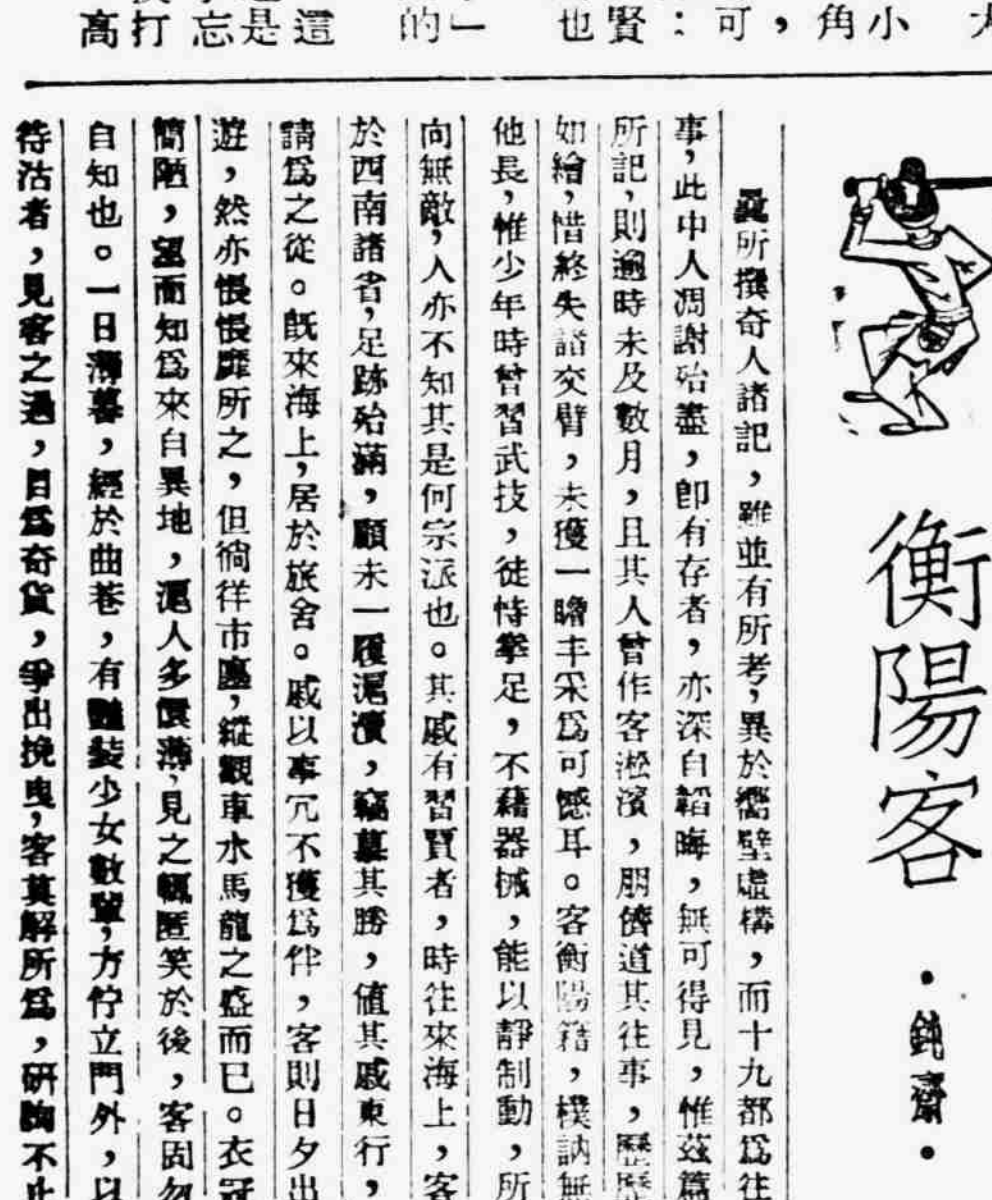 高打忘是這　的「　也賢：可，角小
衡陽客
・鈍齋・
曩所撰奇人諸記，雖並有所考，異於嚮壁虛構，而十九都爲往
事，此中人凋謝殆盡，卽有存者，亦深自韜晦，無可得見，惟茲篇
所記，則過時未及數月，且其人曾作客淞濱，朋儕道其往事，歷歷
如繪，惜終失諸交臂，未獲一瞻丰采爲可憾耳。客衡陽籍，樸訥無
他長，惟少年時曾習武技，徒恃拳足，不藉器械，能以靜制動，所
向無敵，人亦不知其是何宗派也。其戚有習賈者，時往來海上，客
於西南諸省，足跡殆滿，顧未一履滬瀆，竊慕其勝，値其戚東行，
請爲之從。旣來海上，居於旅舍。戚以事冗不獲爲伴，客則日夕出
遊，然亦悵悵靡所之，但徜徉市廛，縱觀車水馬龍之盛而已。衣冠
簡陋，望而知爲來自異地，滬人多儇薄，見之輒匿笑於後，客固勿
自知也。一日薄暮，經於曲巷，有豔裝少女數輩，方佇立門外，以
待沽者，見客之過，目爲奇貨，爭出挽曳，客莫解所爲，研詢不止